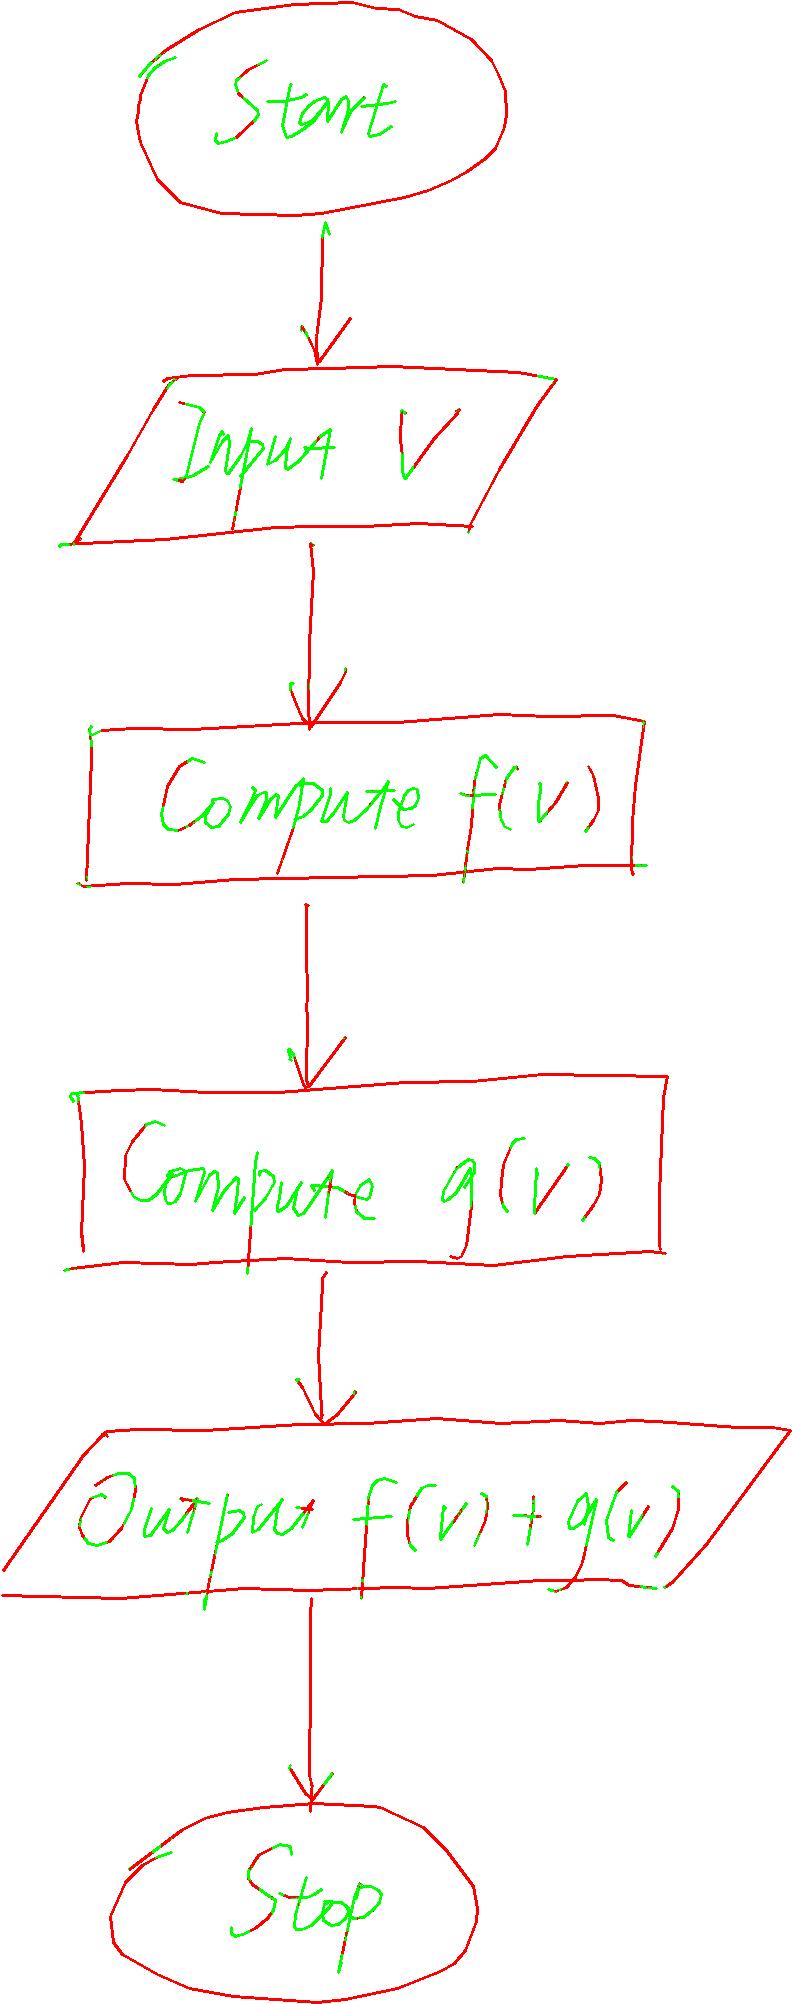 Start
Input V
Compute f(v)
Compute g(v)
Output f(v) + g(v)
Stop